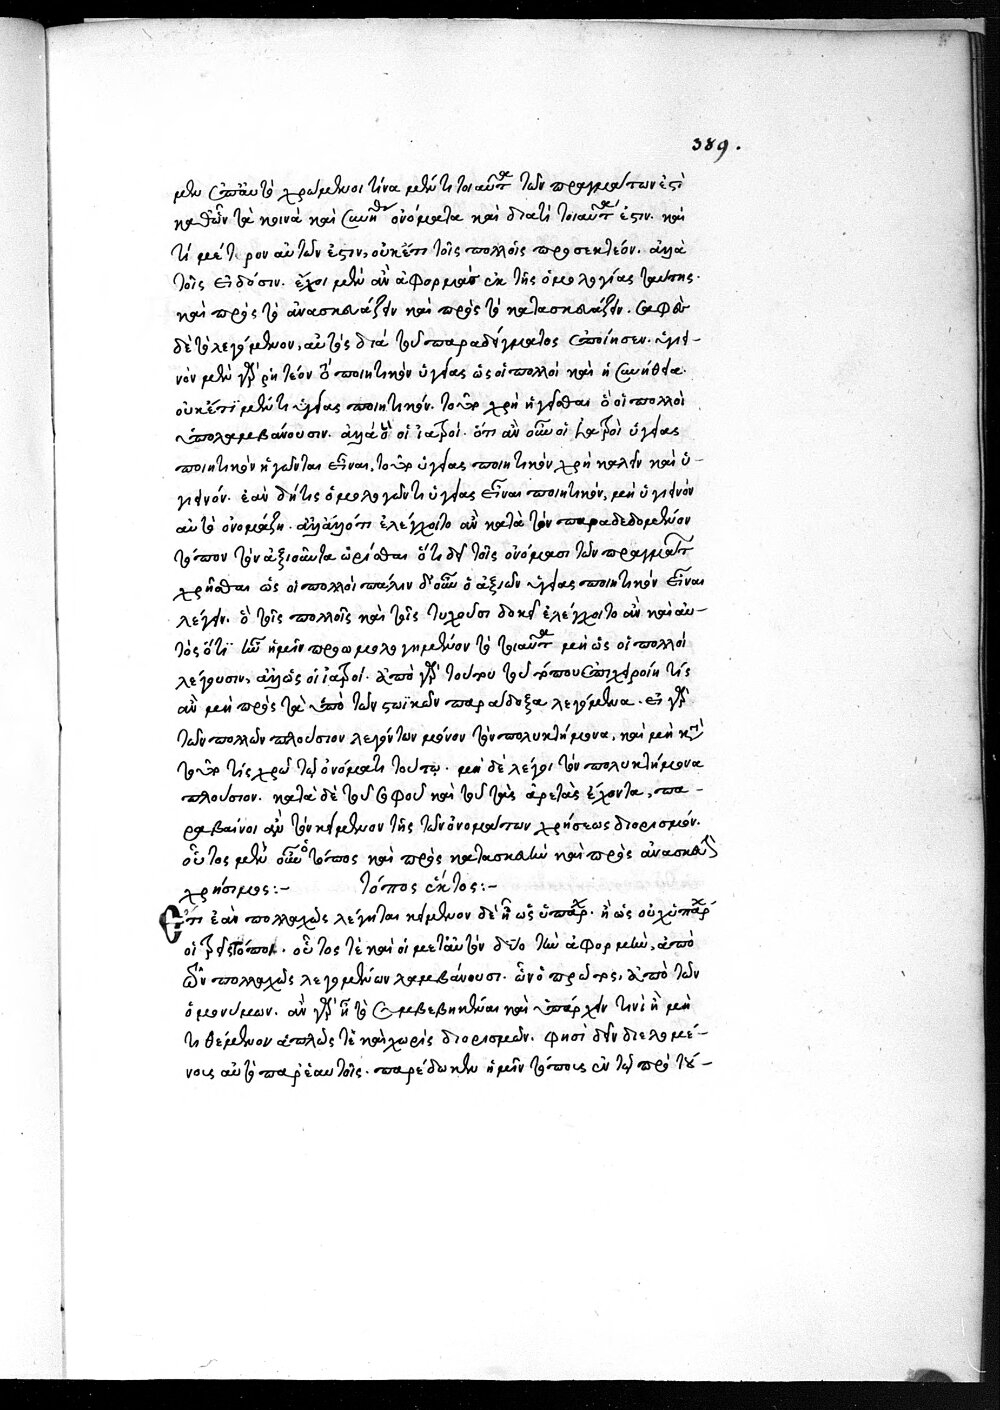 389.
μεν ἐπ' αὐτὸ χρώμενοι τίνα μέντι τοιαῦτα τῶν πραγμάτων ἐστὶ
καθ' ὧν τὰ κοινὰ καὶ συνήθη ὀνόματα καὶ διατί τοιαῦτα ἐστιν. καὶ
τί μέτερον αὐτῶν ἐστιν, οὐκέτι τοῖς πολλοῖς προσεκτέον. ἀλλὰ
τοῖς εἰδόσιν. ἔχοι μὲν ἂν ἀφορμὰς ἐκ τῆς ὁμολογίας ταύτης.
καὶ πρὸς τὸ ἀνασκευάζειν καὶ πρὸς τὸ κατασκευάζειν. σαφὲς
δὲ τὸ λεγόμενον, αὐτὸς διὰ τοῦ παραδείγματος ἐποίησεν. ὑγιει-
νὸν μὲν γὰρ ῥητέον τὸ ποιητικὸν ὑγείας ὡς οἱ πολλοὶ καὶ ἡ συνήθεια.
οὐκέτι μέντι ὑγείας ποιητικόν. τοῦτο χρὴ ἡγεῖσθαι ὃ οἱ πολλοὶ
ὑπολαμβάνουσιν. ἀλλὰ ὃ οἱ ἰατροί. ὅτι ἂν οὖν οἱ ἰατροὶ ὑγείας
ποιητικὸν ἡγῶνται εἶναι, τοῦτο ὑγείας ποιητικὸν χρὴ καλεῖν καὶ ὑ-
γιεινόν. ἐὰν δή τις ὁμολογῶν τι ὑγείας εἶναι ποιητικόν, μὴ ὑγιεινὸν
αὐτὸ ὀνομάζῃ. ἀλλ' ἀλλότι ἐλέγχοιτο ἂν κατὰ τὸν παραδεδομένον
τόπον τὸν ἀξιοῦντα ὡρίσθαι ὅτι δεῖ τοῖς ὀνόμασι τῶν πραγμάτων
χρῆσθαι ὡς οἱ πολλοί πάλιν δ' οὖν ὁ ἀξιῶν ὑγείας ποιητικὸν εἶναι
λέγειν. ὃ τοῖς πολλοῖς καὶ τοῖς τυχοῦσι δοκεῖ ἐλέγχοιτο ἂν καὶ αὐ-
τὸς ὅτι ἦν ἡμῖν προωμολογημένον τὸ τοιαῦτα μὴ ὡς οἱ πολλοὶ
λέγουσιν, ἀλλ' ὡς οἱ ἰατροί. ἀπὸ γὰρ τούτου τοῦ τόπου ἐπιχειροίη τις
ἂν μὴ πρὸς τὰ ὑπὸ τῶν στωϊκῶν παράδοξα λεγόμενα. εἰ γὰρ
τῶν πολλῶν πλούσιον λεγόντων μόνον τὸν πολυκτήμονα, καὶ μὴ κατὰ
τοῦτο τίς χρῷ τῷ ὀνόματι τούτῳ. μὴ δὲ λέγοι τὸν πολυκτήμονα
πλούσιον. κατὰ δὲ τοῦ σοφοῦ καὶ τοῦ τὰς ἀρετὰς ἔχοντα, πα-
ραβαίνοι ἂν τὸν κείμενον τῆς τῶν ὀνομάτων χρήσεως διορισμόν.
οὗτος μὲν οὖν ὁ τόπος καὶ πρὸς κατασκευὴν καὶ πρὸς ἀνασκευὴν
χρήσιμος:- τόπος ἕκτος:-
Ἔτι ἐὰν πολλαχῶς λέγηται κείμενον δὲ ᾖ ὡς ὑπάρχον. ἢ ὡς οὐχ ὑπάρχον
οἱ τρεῖς τόποι. οὗτος τὲ καὶ οἱ μετ' αὐτὸν δύο τῶν ἀφορμῶν, ἀπὸ
τῶν πολλαχῶς λεγομένων λαμβάνουσι. ὧν ὁ πρῶτος, ἀπὸ τῶν
ὁμονύμων. ἂν γὰρ ᾖ τὸ συμβεβηκέναι καὶ ὑπάρχειν τινὶ ἢ μὴ
τιθέμενον ἁπλῶς τὲ καὶ χωρὶς διορισμῶν. φησὶ δεῖν διελομέ-
νοις αὐτὸ παρ' ἑαυτοῖς. παρέδωκεν ἡμῖν τόπους ἐν τῷ πρὸ τού-